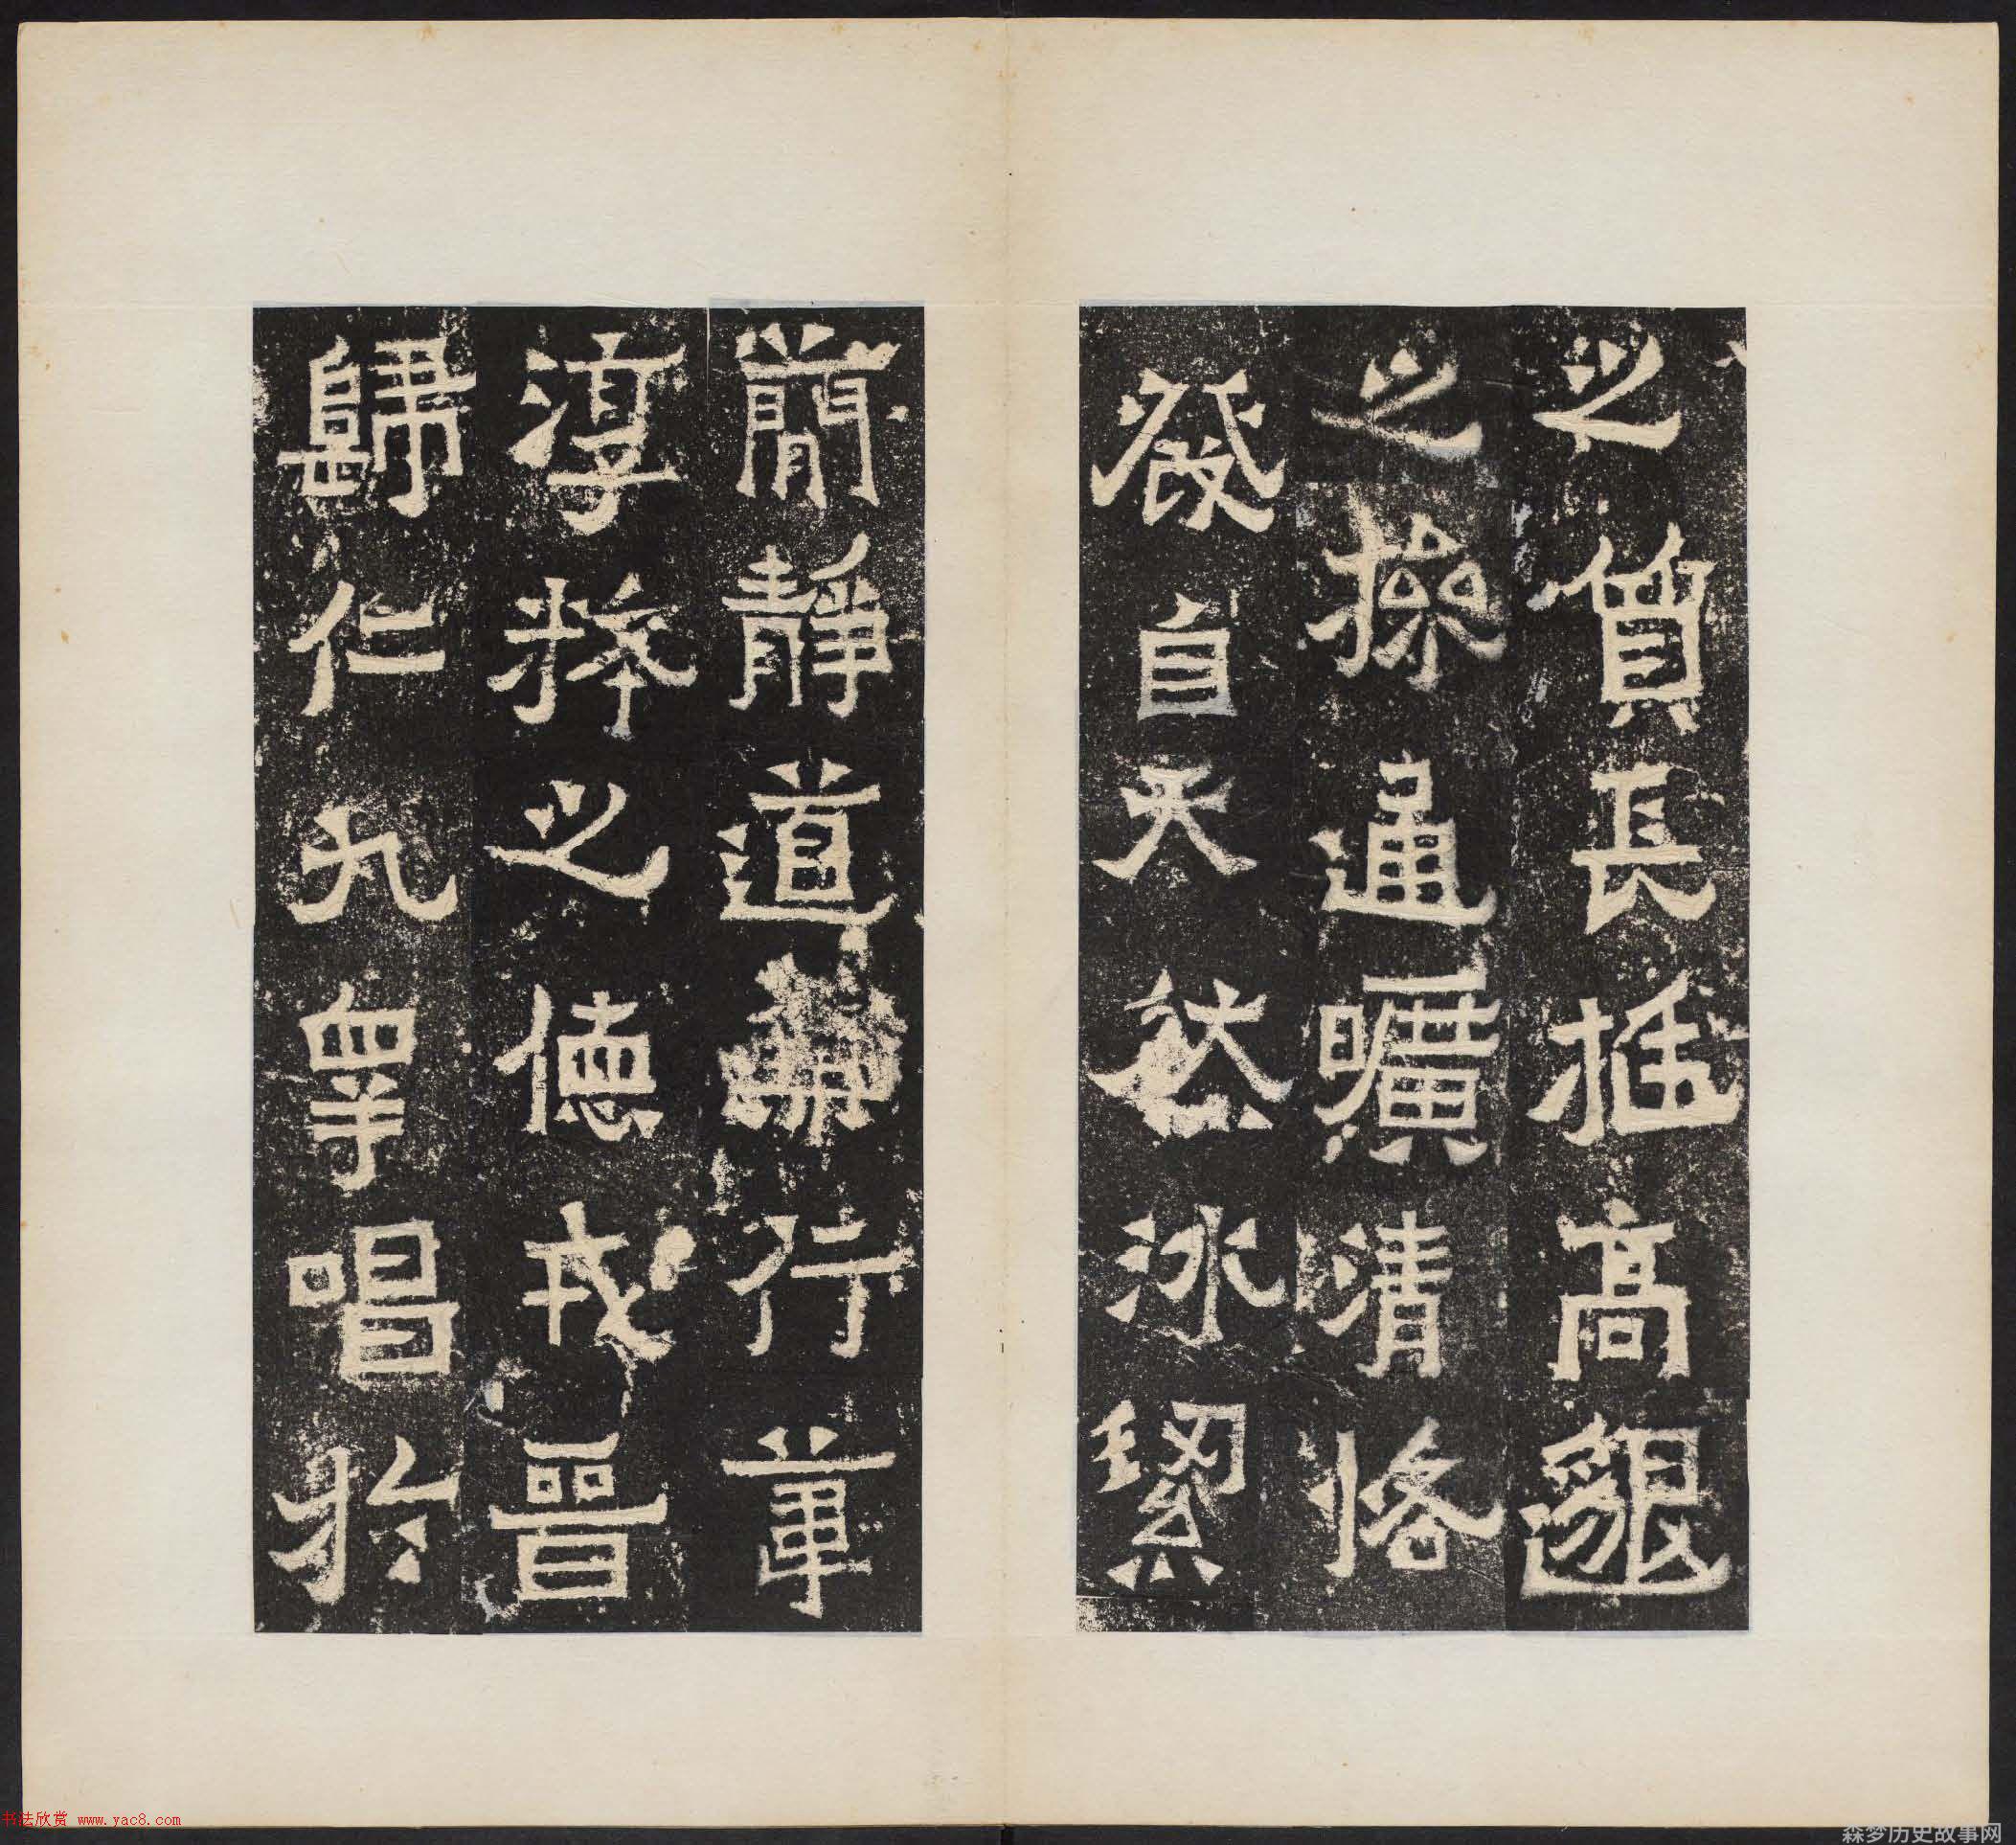 之質長挺高邈
之操通曠清恪
發自天然冰絜
簡靜道兼行葦
淳粹之德戎晉
歸仁九皋唱於
书法欣赏 www.yac8.com
森梦历史故事网